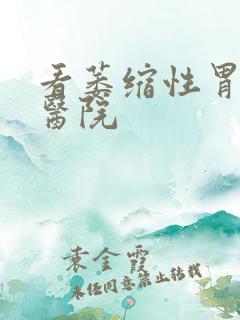 看萎缩性胃
醫院
袁金霞
未经同意禁止转载